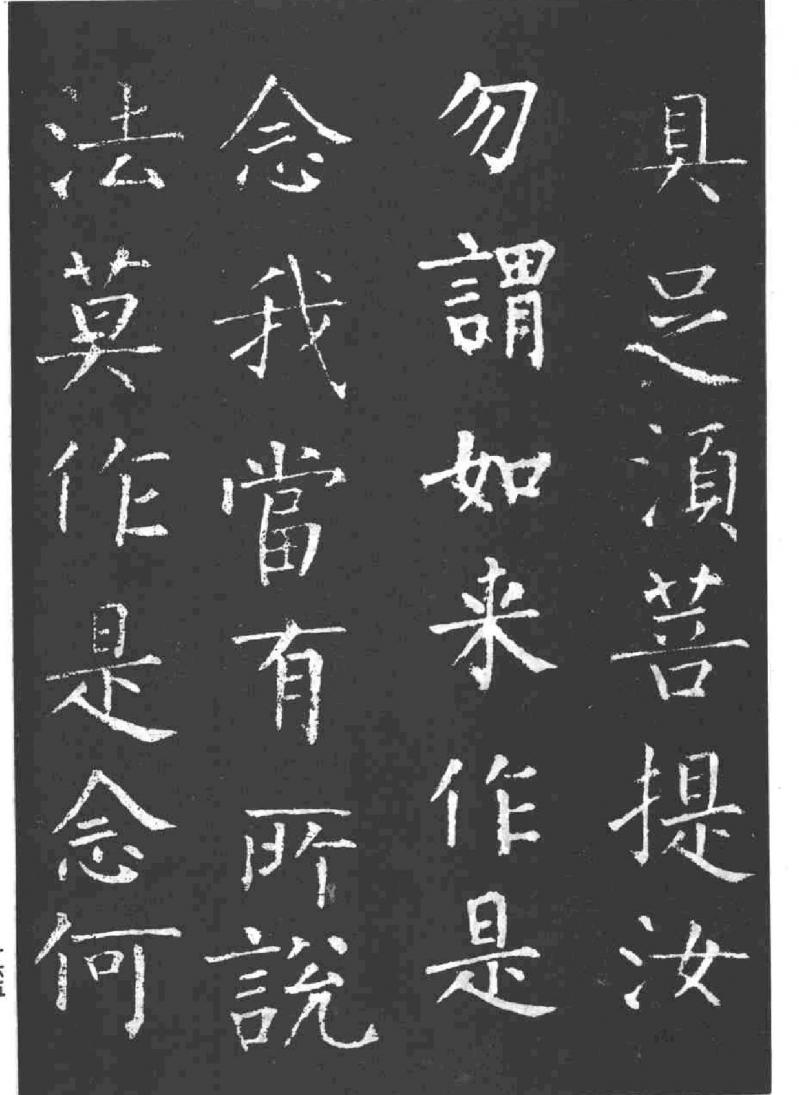 具足湏菩提汝
勿謂如来作是
念我當有所說
法莫作是念何